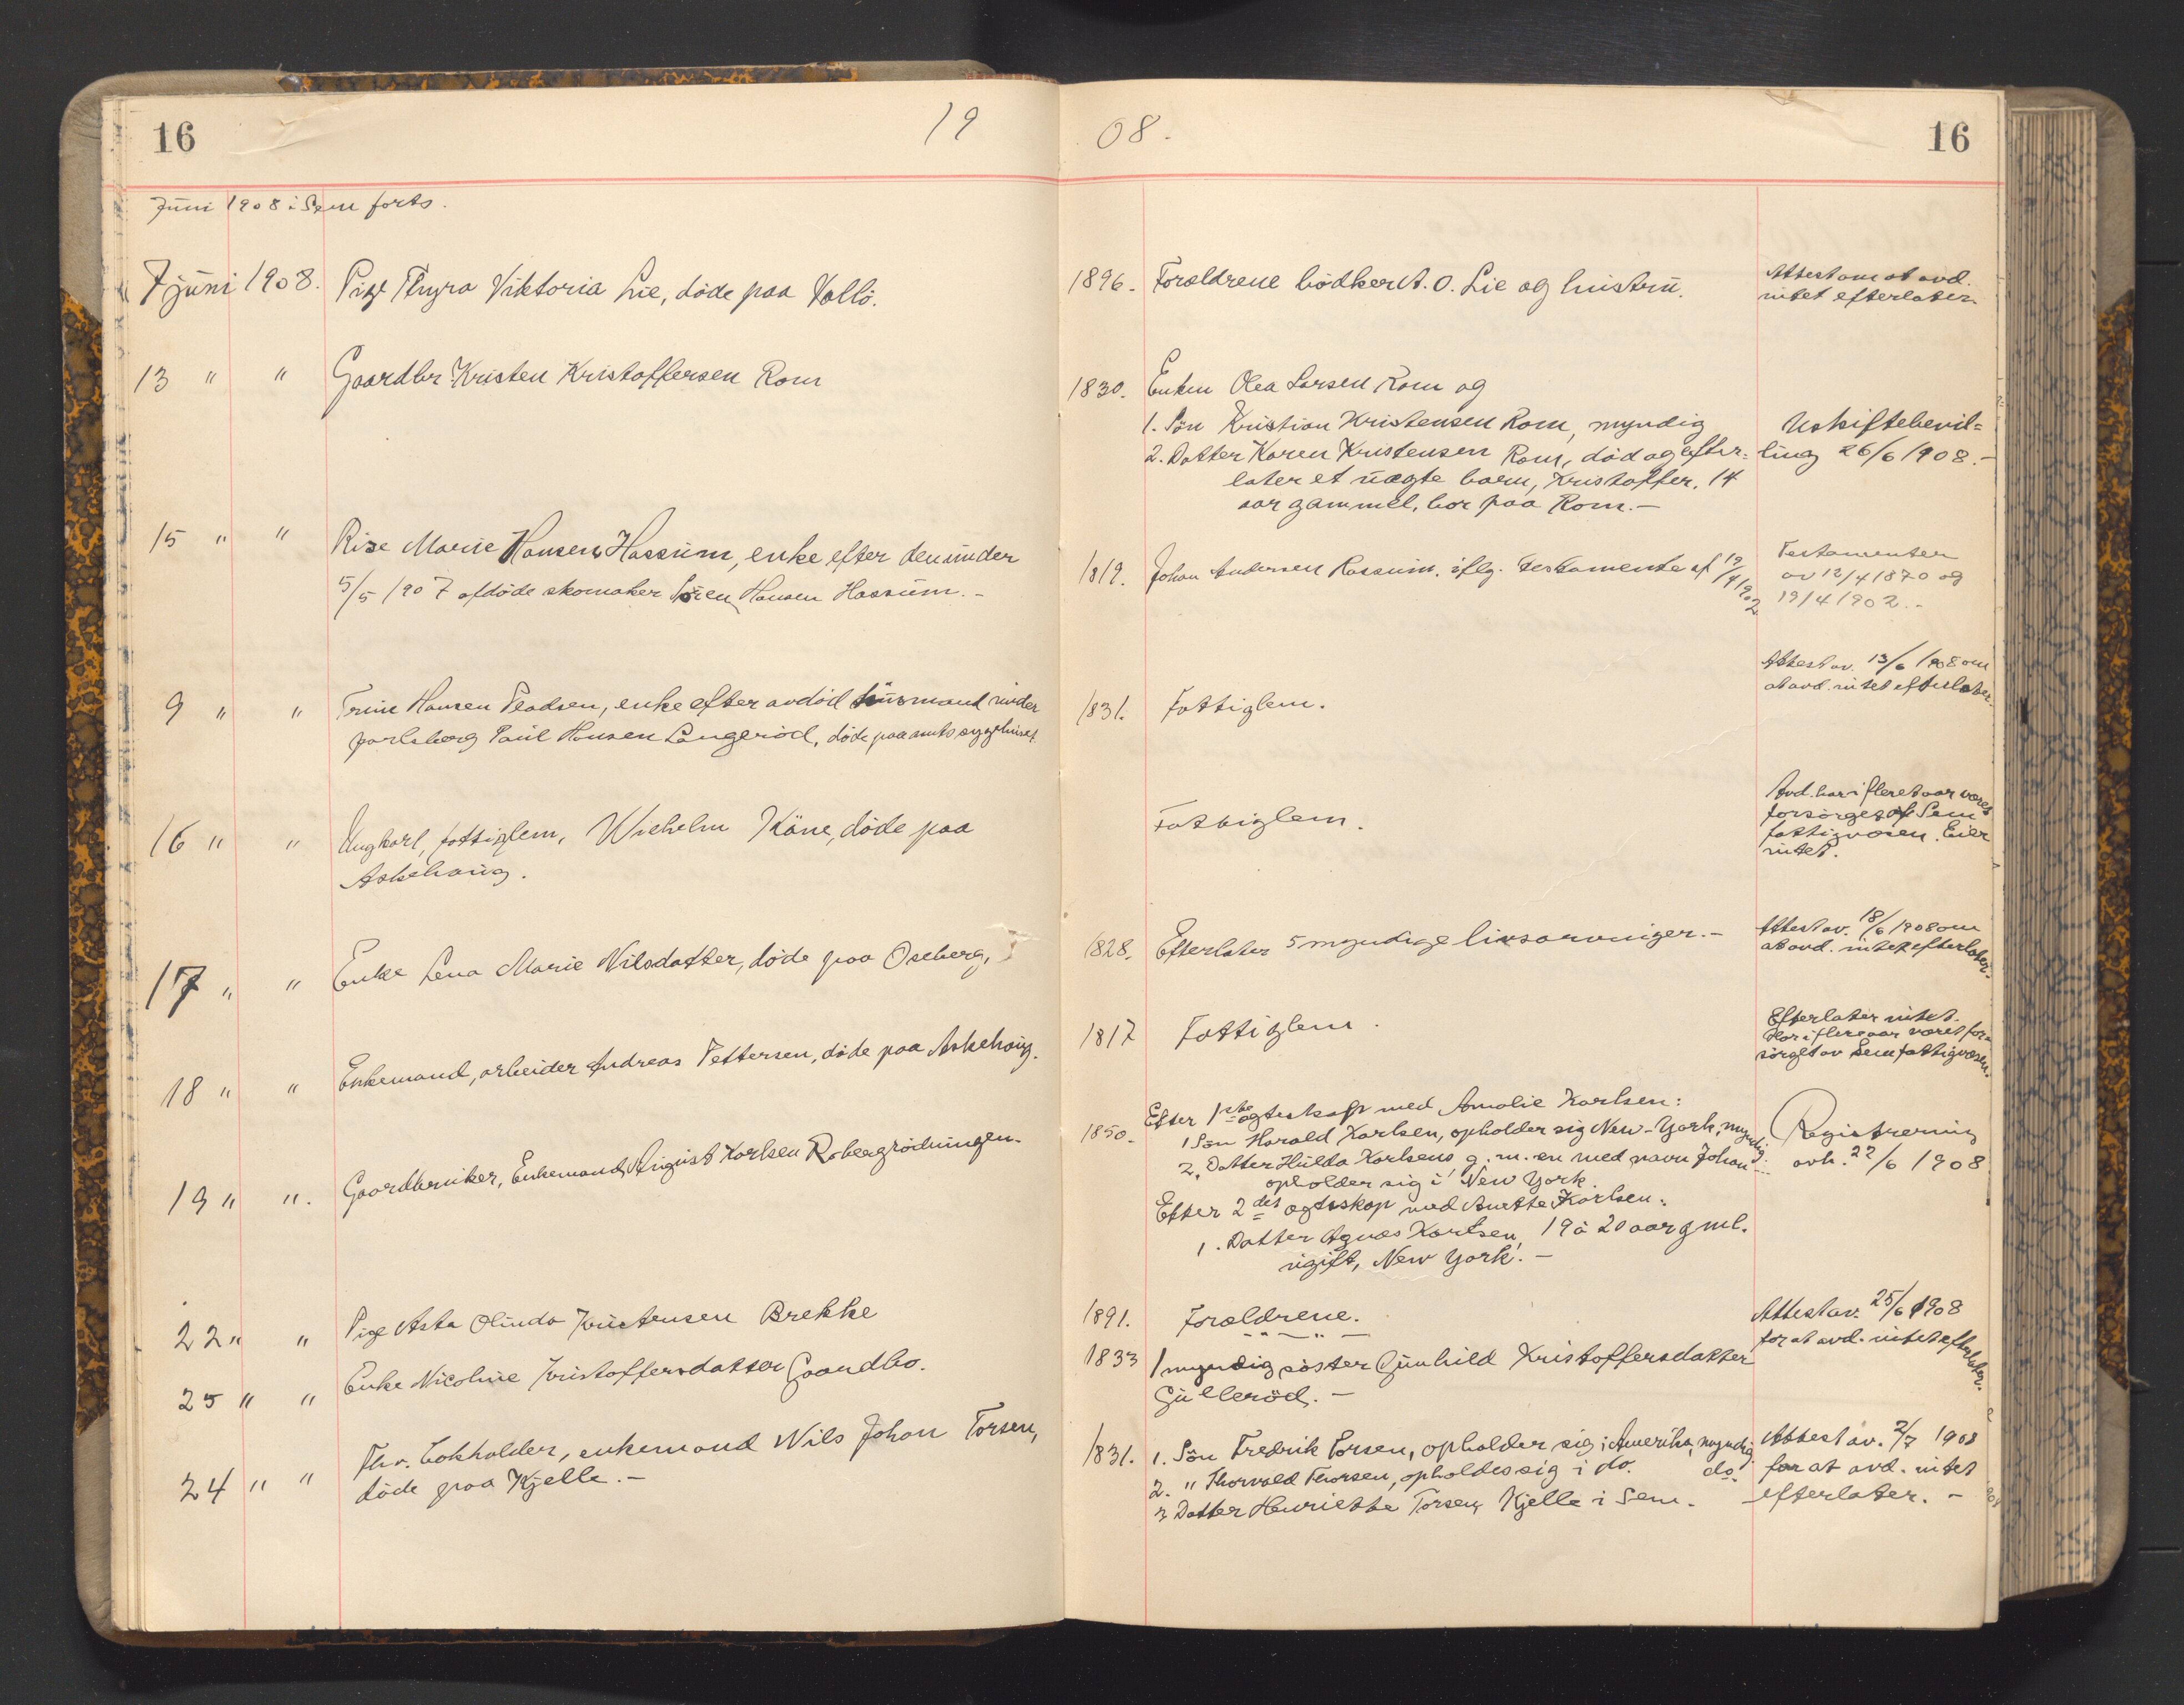 16 19 08. 16
Juni 1908 i Sem forts.
7 juni 1908. Pige Thyra Viktoria Lie, døde paa Vallö. 1896. Forældrene bödker A. O. Lie og hustru. Attest om at avd.
intet efterlater.
13 " " Gaardbr. Kristen Kristoffersen Rom 1830. Enken Olea Larsen Rom og
1. Sön Kristian Kristensen Rom, myndig Uskiftebevil=
2. Datter Karen Kristensen Rom, död og efter= ling 26/6 1908.-
later et uægte barn, Kristoffer, 14
aar gammel, bor paa Rom.-
15 " " Marie Hansen Hassum, enke efter den under 1819. Johan Andersen Rossum, iflg. testamente af 19/4 1902 Testamenter
5/5 1907 afdöde skomaker Sören Hansen Hassum.- av 12/4 1870 og
19/4 1902.-
9 " " Trine Hansen Pladsen, enke efter avdöd husmand under 1831. Fattiglem. Attest av. 13/6 1908 om
Jarlsberg Paul Hansen Langeröd, döde paa amts sygehuset. at avd. intet efterlater.
16 " " Ungkarl, fattiglem, Wilhelm Käne, döde paa Fattiglem. Avd. har i flere aar været
Askehaug. forsörget af Sem
fattigvæsen. Eier
intet.
17 " " Enke Lena Marie Nilsdatter, döde paa Oseberg, 1828. Efterlater 5 myndige livsarvinger.- Attest av. 18/6 1908 om
at avd. intet efterlater.
18 " " Enkemand, arbeider Andreas Pettersen, döde paa Askehaug. 1817 Fattiglem. Efterlater intet.
Har i flere aar været for=
sörget av Sem fattigvæsen.
19 " ". Gaardbruker, Enkemand August Karlsen Robergrödningen. 1850. Efter 1ste ægteskap med Amalie Karlsen: Registrering
1 Sön Harald Karlsen, opholder sig New-York, myndig. avh. 22/6 1908
2. Datter Hulda Karlsens g. m. en med navn Johan
opholder sig i New York.
Efter 2det ægteskap med Anette Karlsen:
1. Datter Agnes Karlsen, 19 à 20 aar gml.
ugift, New York.-
22 " " Pige Asta Olinda Kristensen Brekke 1891. Forældrene. Attest av. 25/6 1908
for at avd. intet efterlater.
25 " " Enke Nicoline Kristoffersdatter Gaandbo. 1833 1 myndig söster Gunhild Kristoffersdatter
Gulleröd.-
24 " " Fhv. Lokholder, enkemand Nils Johan Torsen, 1831. 1. Sön Fredrik Torsen, opholder sig i Amerika, myndig Attest av. 2/7 1908
döde paa Kjelle.- 2. " Thorvald Thorsen, opholder sig i do. do. for at avd. intet
3 Datter Henriette Torsen, Kjelle i Sem.- efterlater.-